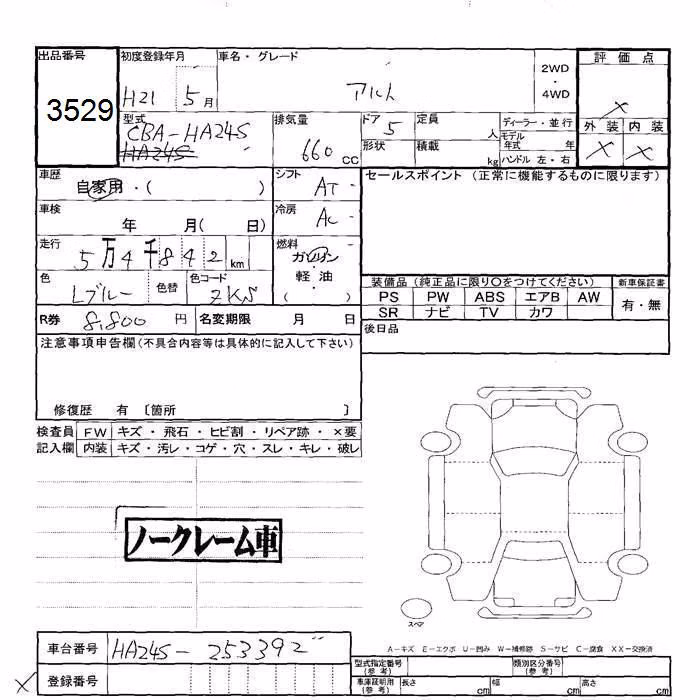 出品番号
3529
初度登録年月
H21 5月
車名・グレード
アルト
2WD
・
4WD
評価点
×
外装 内装
× ×
型式
CBA-HA24S
HA24S
排気量
660 cc
ドア 5
定員 人
形状
積載 kg
ディーラー・並行
モデル年式 年
ハンドル 左・右
車歴
自家用・( )
シフト
AT
車検
年 月( 日)
冷房
AC
走行
5万4千842km
燃料
ガソリン
軽油
( )
色
Lブルー
色替
色コード
ZKS
R券 8,800 円
名変期限 月 日
セールスポイント (正常に機能するものに限ります)
装備品 (純正品に限り〇をつけてください)
新車保証書
PS PW ABS エアB AW
有・無
SR ナビ TV カワ
後日品
注意事項申告欄(不具合内容等は具体的に記入して下さい)
修復歴 有 〔箇所 〕
検査員 FW キズ・飛石・ヒビ割・リペア跡・×要
記入欄 内装 キズ・汚レ・コゲ・穴・スレ・キレ・破レ
ノークレーム車
スペア
A-キズ E-エクボ U-凹み W-補修跡 S-サビ C-腐食 XX-交換済
車台番号 HA24S-253392
型式指定番号
(参考)
類別区分番号
(参考)
× 登録番号
車庫証明用
(参考)
長さ cm
幅 cm
高さ cm